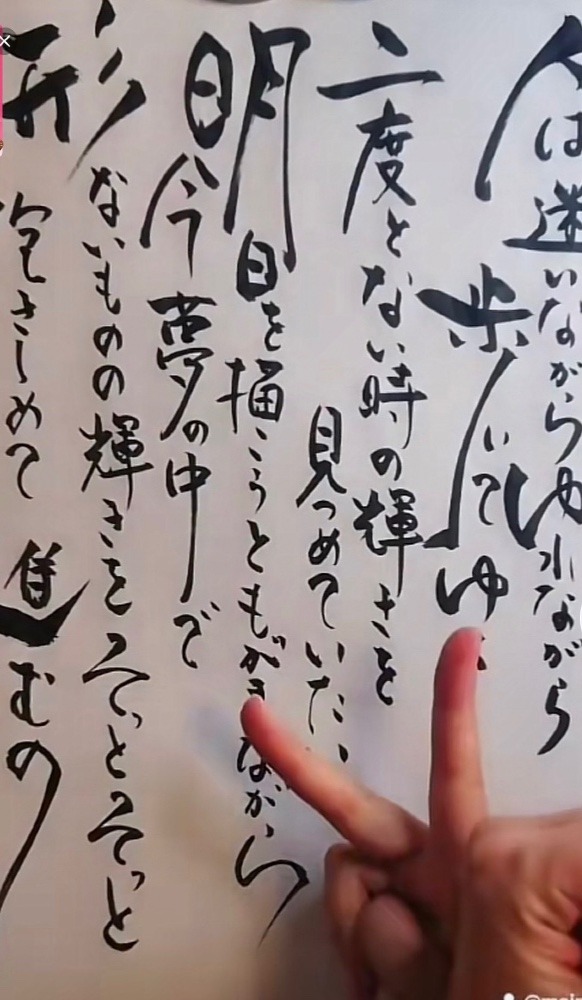 人は迷いながらゆれながら
歩いてゆ
二度とない時の輝きを
見つめていたい
明日を描こうともがきながら
今夢の中で
形ないものの輝きをそっとそっと
抱きしめて進むの